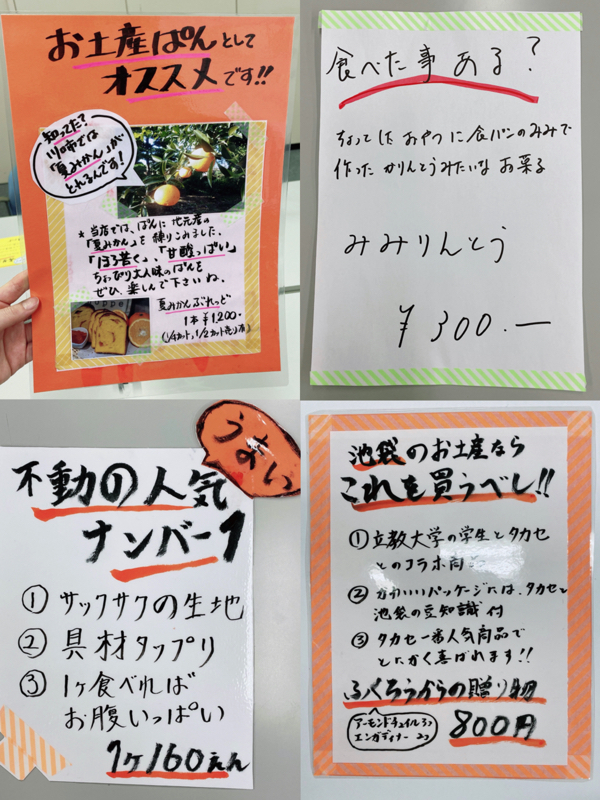 お土産ぱんとして
オススメです!!
知ってた?
川口市では
「夏みかん」が
とれるんです!
* 当店では、ぱんに地元産の
「夏みかん」を練りこみました。
「ほろ苦く」、「甘酸っぱい」
ちょっぴり大人味のぱんを
ぜひ、楽しんで下さいね。
夏みかんぶれっど
1本¥1,200-
(1/4カット,1/2カット売り有)
食べた事ある?
ちょっとした おやつに食パンのみみで
作った かりんとうみたいな お菓子
みみりんとう
¥300.ー
うまい
不動の人気
ナンバー1
① サックサクの生地
② 具材タップリ
③ 1ヶ食べれば
お腹いっぱい
1ヶ160えん
池袋のお土産なら
これを買うべし!!
① 立教大学の学生とタカセ
とのコラボ商品
② かわいいパッケージには、タカセと
池袋の豆知識付
③ タカセ一番人気商品で
とにかく喜ばれます!!
ふくろうからの贈り物
アーモンドチュイル3コ
エンガディナー 2コ
800円